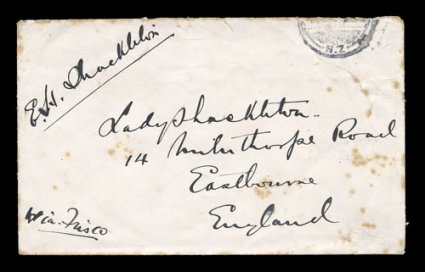 E.H. Shackleton
N.Z.
Lady Shackleton.
14 Milnthorpe Road
Eastbourne
England
Via Frisco